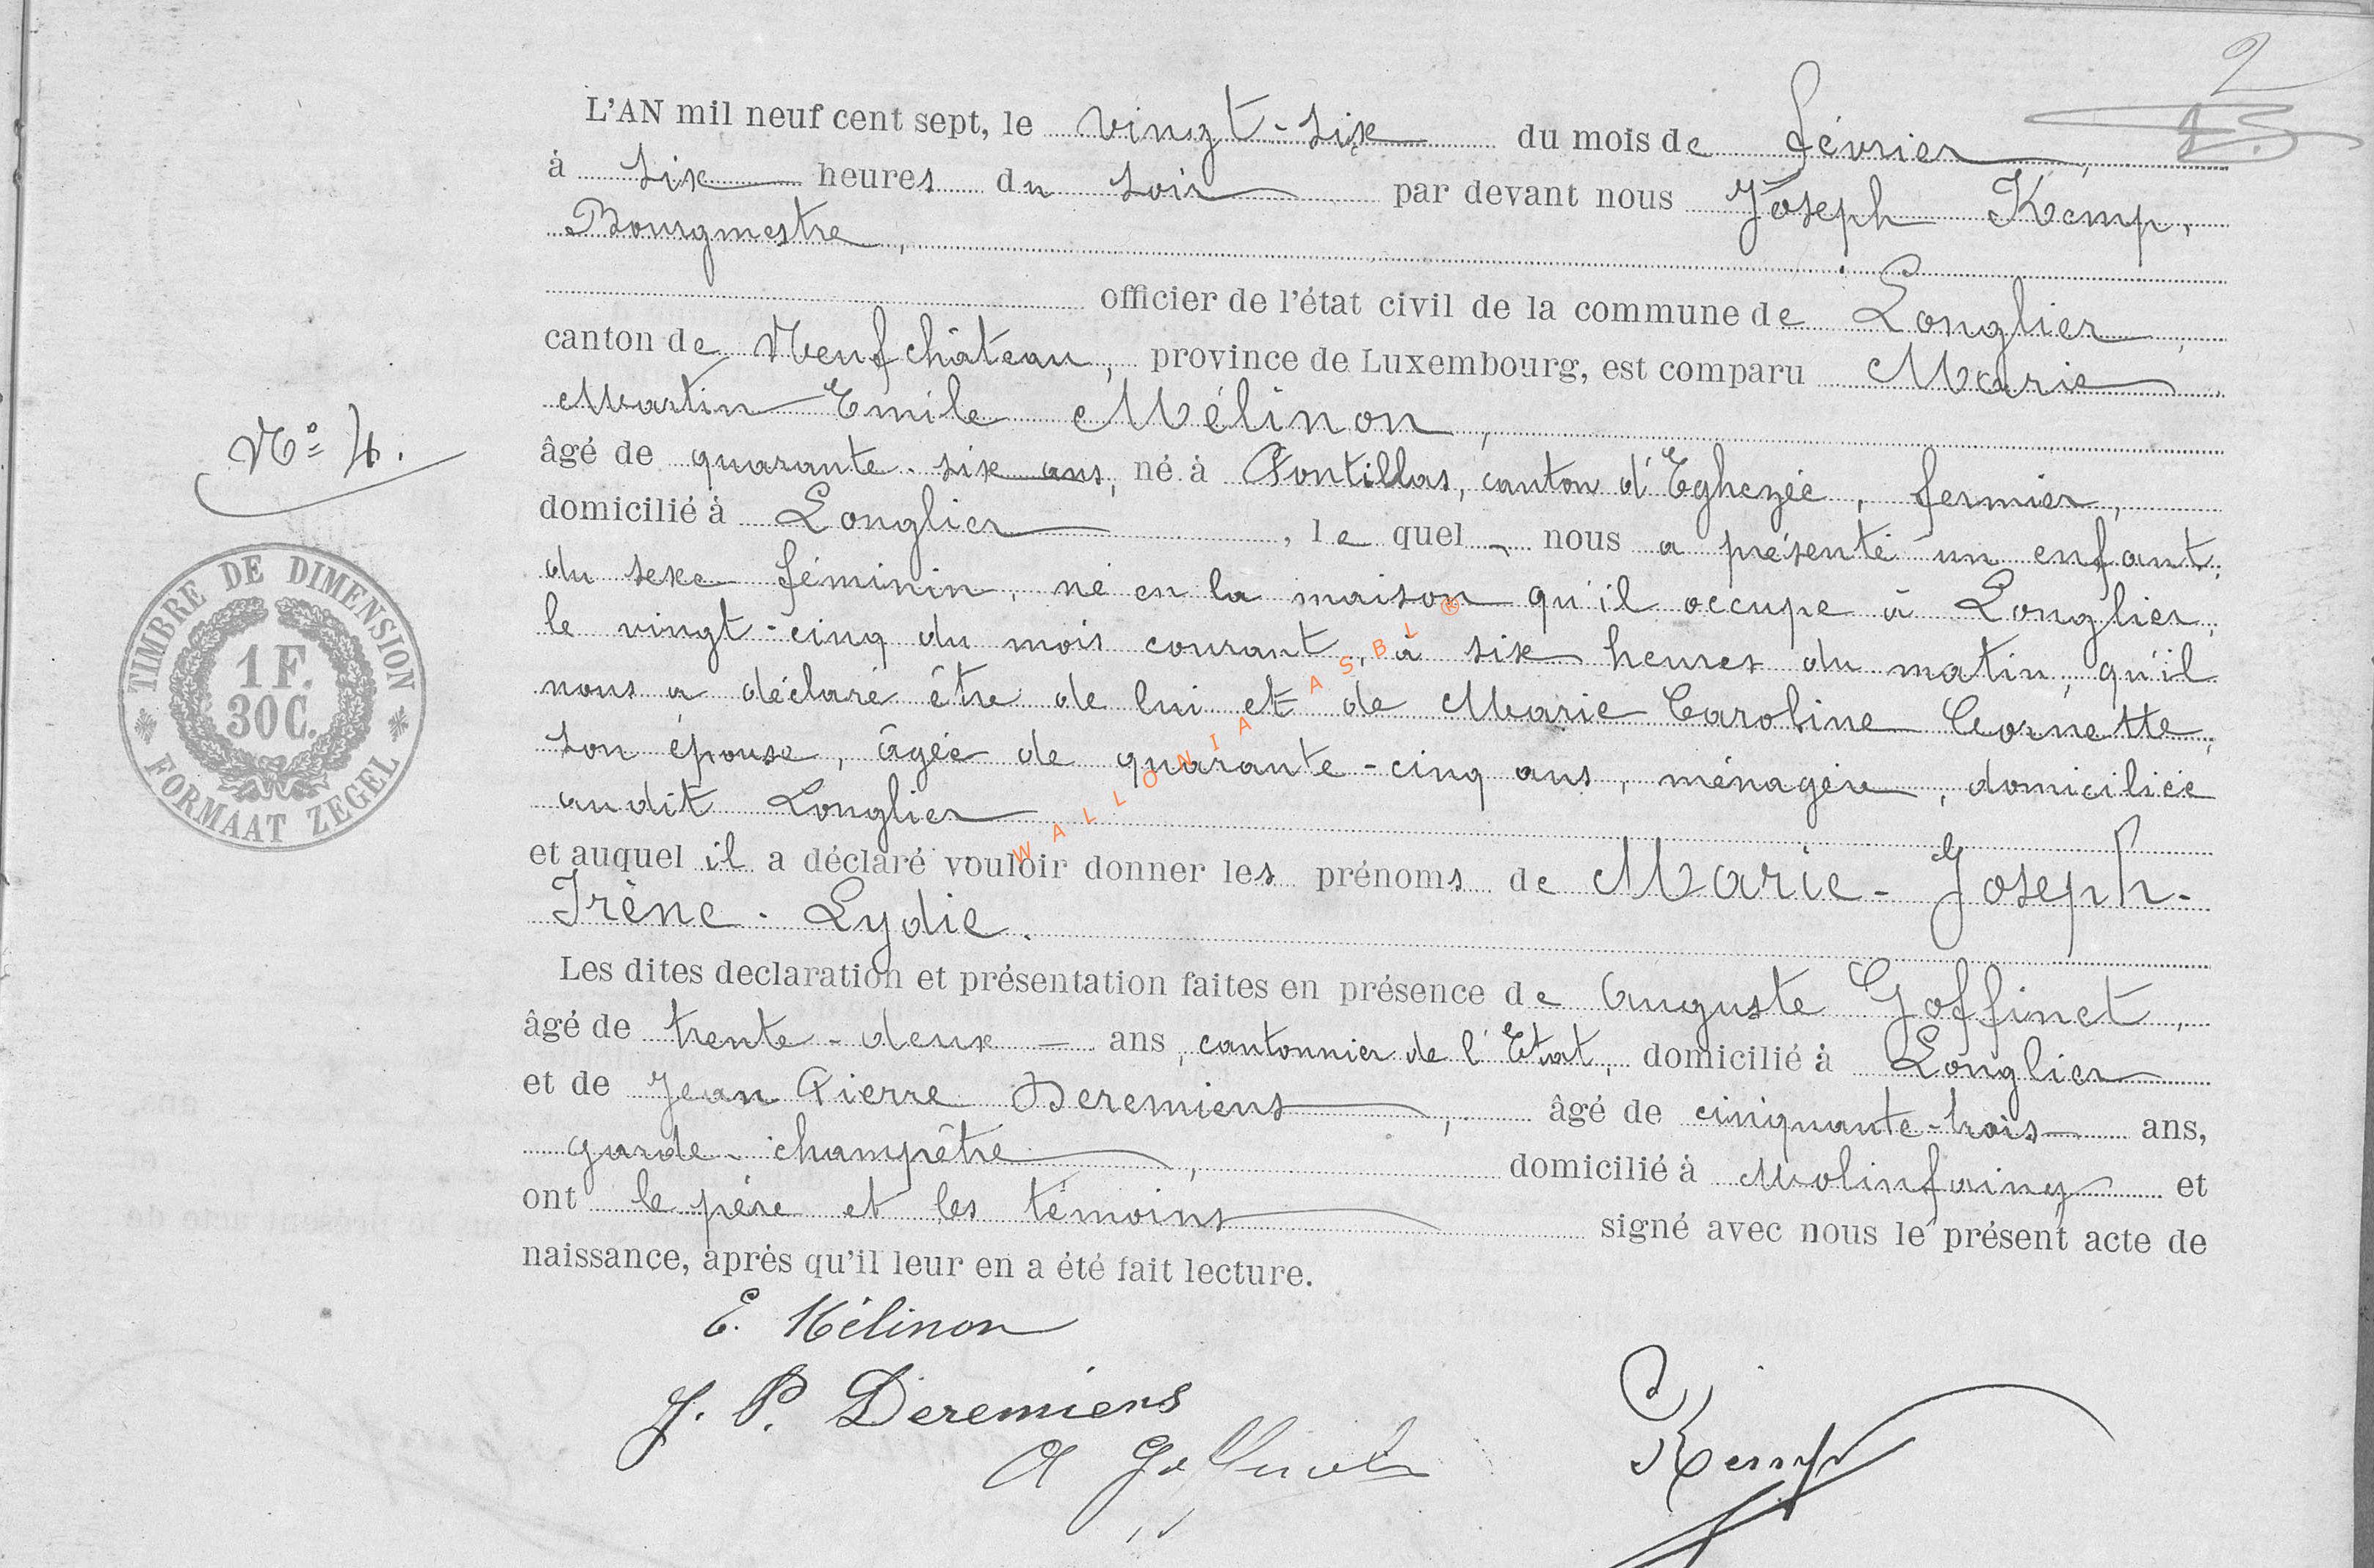 2
L'AN mil neuf cent sept, le vingt-six du mois de février,
à six heures du soir par devant nous Joseph Kemp,
Bourgmestre,
officier de l'état civil de la commune de Longlier,
canton de Neufchâteau, province de Luxembourg, est comparu Marie
Martin Emile Mélinon,
âgé de quarante-six ans, né à Pontillas, canton d'Eghezée, fermier,
domicilié à Longlier, lequel nous a présenté un enfant
du sexe féminin, né en la maison qu'il occupe à Longlier,
le vingt-cinq du mois courant, à six heures du matin, qu'il
nous a déclaré être de lui et de Marie Caroline Cornette,
son épouse, âgée de quarante-cinq ans, ménagère, domiciliée
au dit Longlier
et auquel il a déclaré vouloir donner les prénoms de Marie-Joseph-
Irène-Lydie.
Les dites declaration et présentation faites en présence de Auguste Goffinet,
âgé de trente-deux — ans, cantonnier de l'Etat, domicilié à Longlier
et de Jean Pierre Deremiens, âgé de cinquante-trois ans,
garde-champêtre, domicilié à Molinfaing et
ont le père et les témoins signé avec nous le présent acte de
naissance, après qu'il leur en a été fait lecture.
E. Mélinon
J. P. Deremiens
A Goffinet
Kemp
N° 4.
TIMBRE DE DIMENSION
1 F.
30 C.
FORMAAT ZEGEL
WALLONIA ASBL ®